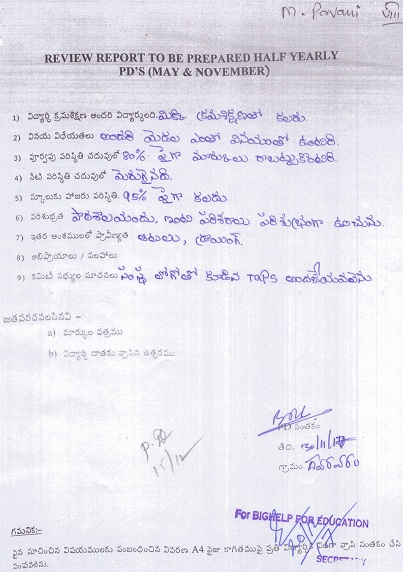 M. Pavani VIII
REVIEW REPORT TO BE PREPARED HALF YEARLY
PD'S (MAY & NOVEMBER)
1) విద్యార్థి క్రమశిక్షణ అందరి విద్యార్థులది. మిక్కిలి క్రమశిక్షణలో కలరు.
2) వినయ విధేయతలు అందరి యెడల ఎంతో వినయంతో ఉంటారు.
3) పూర్వపు పరిస్థితి చదువులో 80% పైగా మార్కులు రాబట్టుకొంటారు.
4) నేటి పరిస్థితి చదువులో మెరుగైనది.
5) స్కూలుకు హాజరు పరిస్థితి. 95% పైగా కలరు.
6) పరిశుభ్రత పాఠశాలయందు, ఇంటి పరిసరాలు పరిశుభ్రంగా ఉంచును.
7) ఇతర అంశములలో ప్రావీణ్యత ఆటలు, డ్రాయింగ్.
8) అభిప్రాయాలు / సలహాలు
9) కమిటీ సభ్యుల సూచనలు సంస్థ లోగోతో కూడిన Tabs అందచేయవలెను
జతపరచవలసినవి –
a) మార్కుల పత్రము
b) విద్యార్థి దాతకు వ్రాసిన ఉత్తరము
15/12
PD సంతకం
తేది. 30/11/17
గ్రామం
For BIGHELP FOR EDUCATION
SECRETARY
గమనిక:-
పైన సూచించిన విషయములకు సంబంధించిన వివరణ A4 సైజు కాగితముపై ప్రతి వ్రాసి సంతకం చేసి
పంపవలెను.